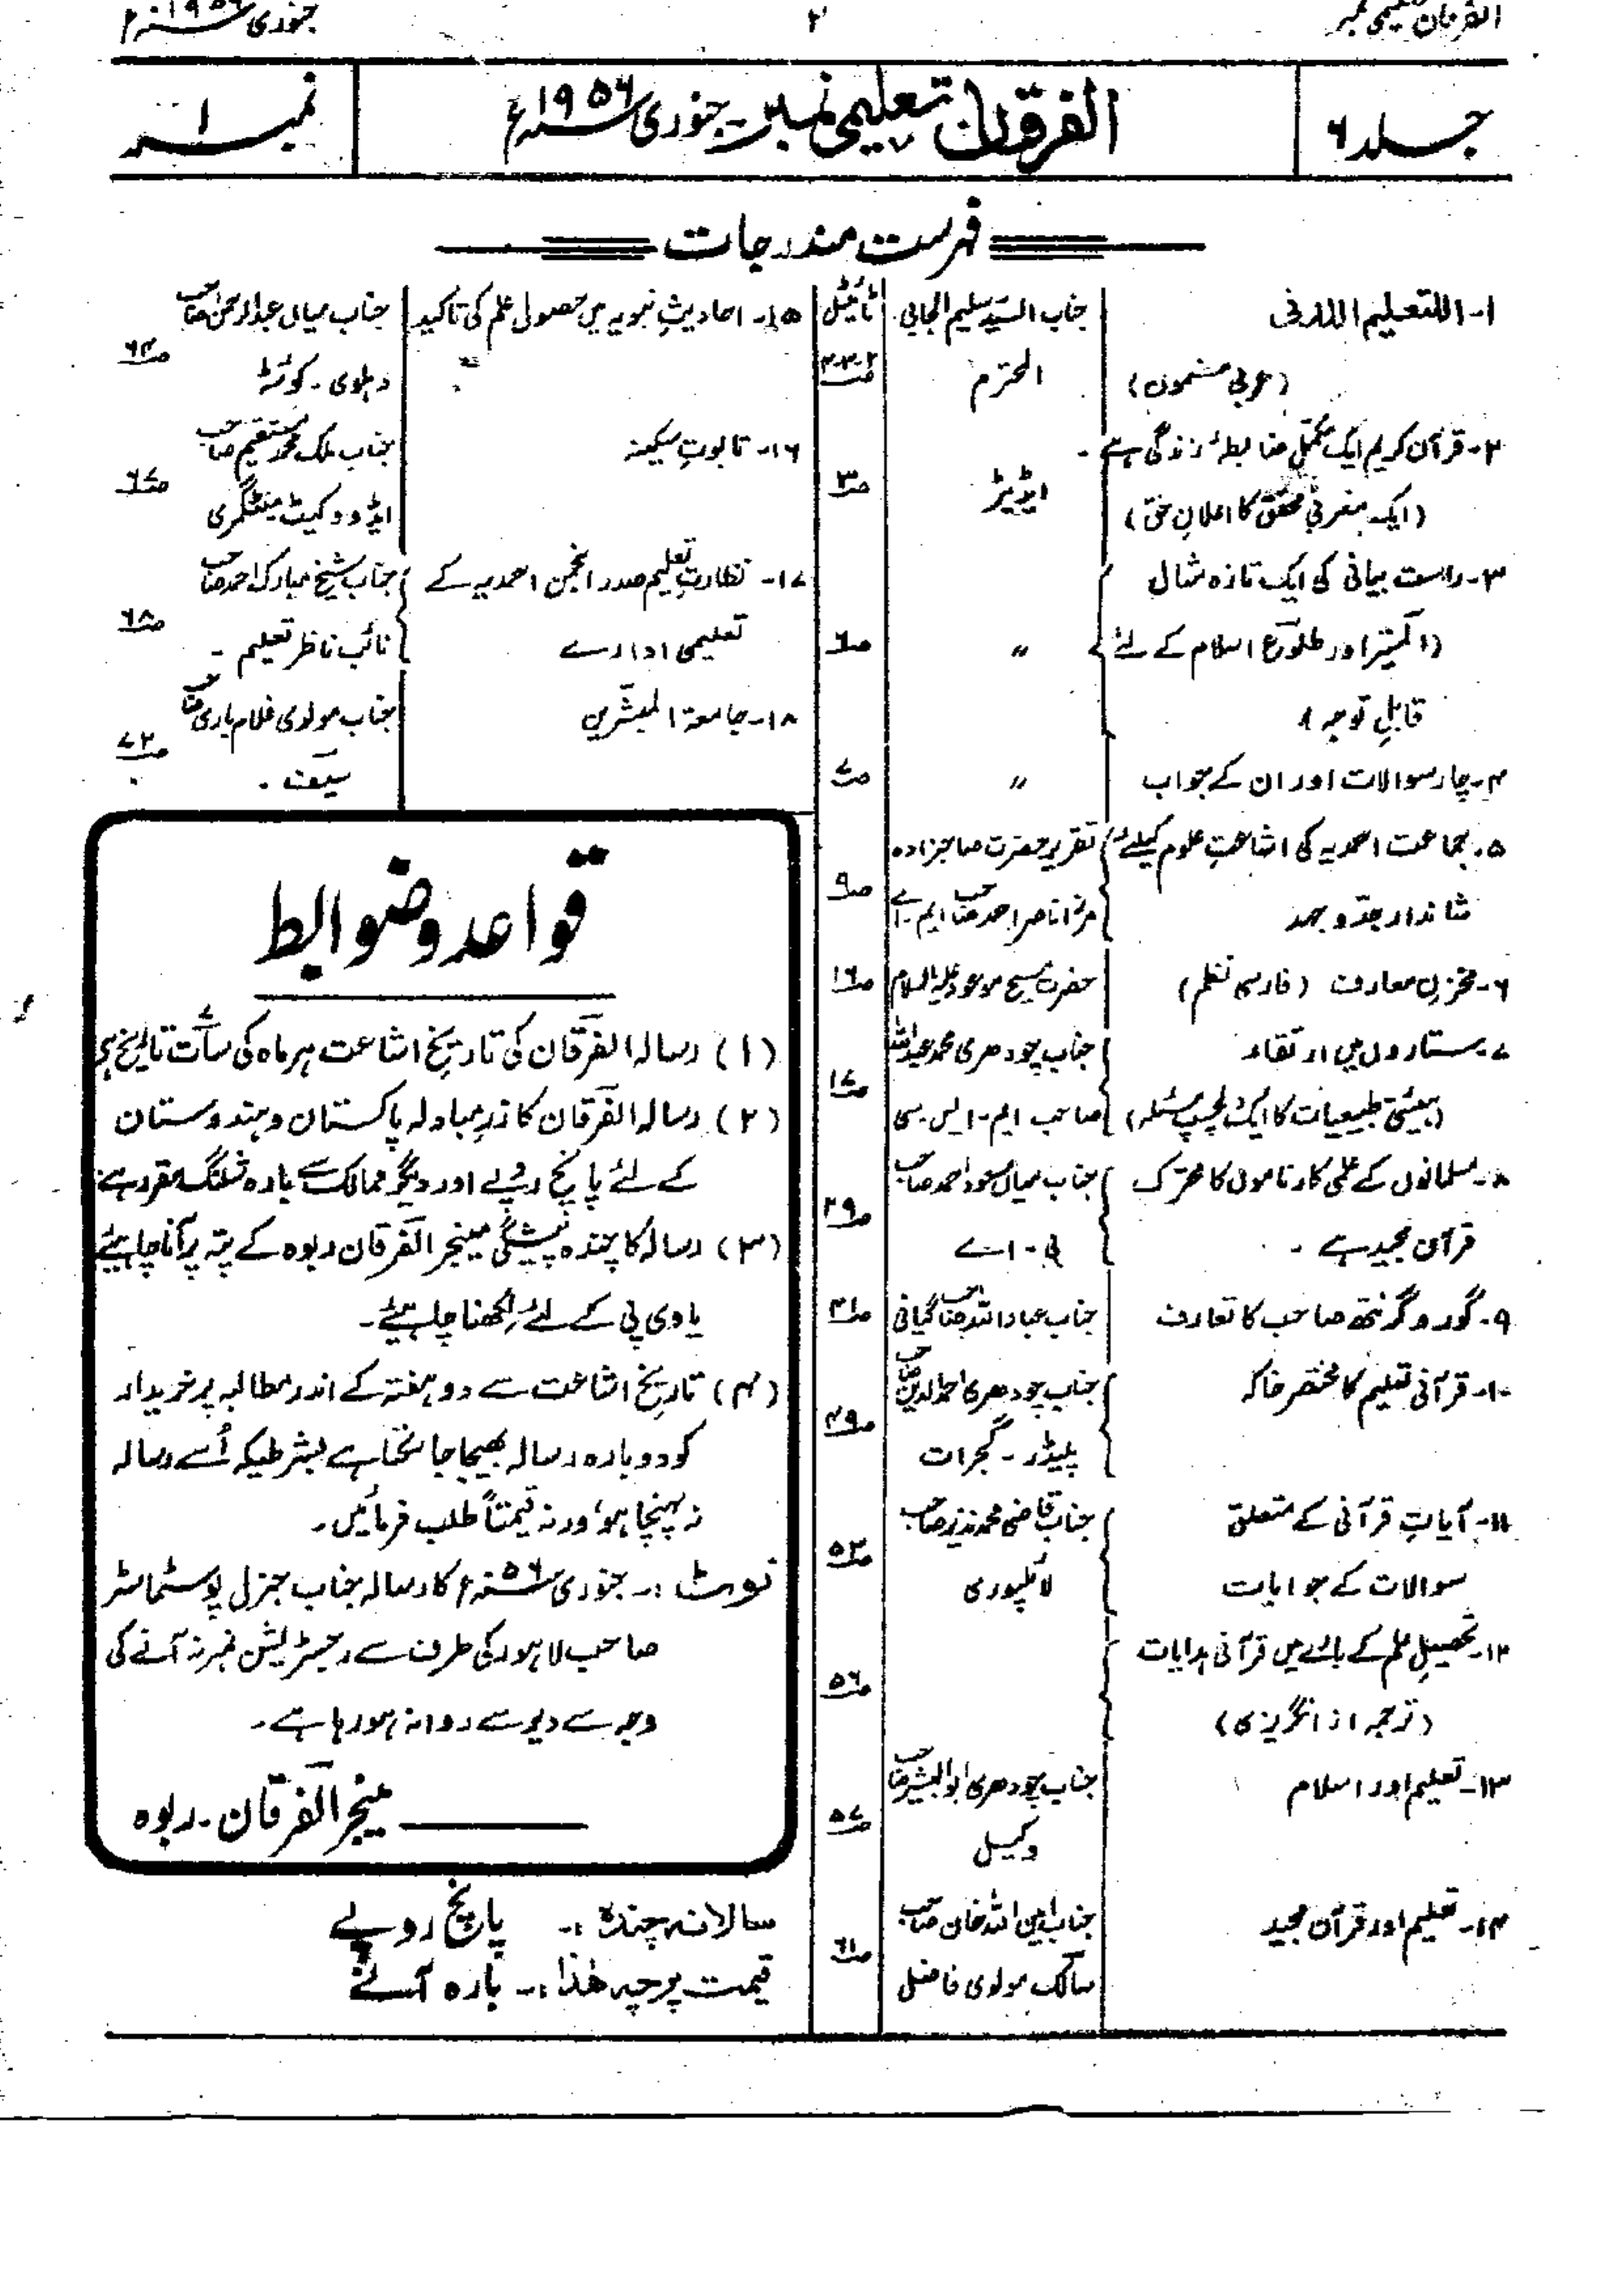 الفرقان تعلیمی نمبر ۲ جنوری ۱۹۵۶ء
جلد ۶ الفرقان تعلیمی نمبر - جنوری ۱۹۵۶ء نمبر ۱
فہرست مندرجات
۱- التعلیم اللدنی جناب السید سلیم الجابی ٹائیٹل
(عربی مضمون) المحترم
۲- قرآن کریم ایک مکمل ضابطۂ زندگی ہے -
(ایک مغربی محقق کا اعلانِ حق) ایڈیٹر ص۳
۳- راست بیانی کی ایک تازہ مثال
(المنیر اور طلوع اسلام کے لئے " ص۶
قابلِ توجہ)
۴- چار سوالات اور ان کے جواب " ص۷
۵- جماعت احمدیہ کی اشاعتِ علوم کیلئے تقریر حضرت صاحبزادہ
شاندار جدوجہد مرزا ناصر احمد صاحب ایم - اے ص۹
۶- مخزنِ معارف (فارسی نظم) حضرت مسیح موعود علیہ السلام ص۱۶
۷- ستاروں میں ارتقاء جناب چودھری محمد عبداللہ
(ہیئتی طبیعیات کا ایک دلچسپ مسئلہ) صاحب ایم - ایس سی ص۱۷
۸- مسلمانوں کے علمی کارناموں کا محرک جناب میاں مسعود احمد صاحب
قرآن مجید ہے - بی - اے ص۲۹
۹- گورو گرنتھ صاحب کا تعارف جناب عباد اللہ صاحب گیانی ص۳۱
۱۰- قرآنی تعلیم کا مختصر خاکہ جناب چودھری احمد الدین صاحب
پلیڈر - گجرات ص۴۹
۱۱- آیاتِ قرآنی کے متعلق جناب قاضی محمد نذیر صاحب
سوالات کے جوابات لائلپوری ص۵۳
۱۲- تحصیلِ علم کے بارے میں قرآنی ہدایات
(ترجمہ از انگریزی) ص۵۶
۱۳- تعلیم اور اسلام جناب چودھری ابوالبشیر صاحب
وکیل ص۵۷
۱۴- تعلیم اور قرآن مجید جناب امین اللہ خان صاحب
سالک مولوی فاضل ص۶۱
۱۵- احادیثِ نبویہ میں حصولِ علم کی تاکید جناب میاں عبدالرحمن صاحب
دہلوی - کوئٹہ ص۶۴
۱۶- تابوتِ سکینہ جناب ملک محمد مستقیم صاحب
ایڈووکیٹ منٹگمری ص۶۷
۱۷- نظارت تعلیم صدر انجمن احمدیہ کے جناب شیخ مبارک احمد صاحب
تعلیمی ادارے نائب ناظر تعلیم - ص۶۸
۱۸- جامعۃ المبشرین جناب مولوی غلام باری صاحب
سیف - ص۷۲
قواعد و ضوابط
(۱) رسالہ الفرقان کی تاریخ اشاعت ہر ماہ کی سات تاریخ ہے
(۲) رسالہ الفرقان کا زرِ مبادلہ پاکستان و ہندوستان
کے لئے پانچ روپے اور دیگر ممالک سے بارہ شلنگ مقرر ہے
(۳) رسالہ کا چندہ پیشگی مینیجر الفرقان ربوہ کے پتہ پر آنا چاہیئے
یا وی پی کے لئے لکھنا چاہیئے -
(۴) تاریخ اشاعت سے دو ہفتہ کے اندر مطالبہ پر خریدار
کو دوبارہ رسالہ بھیجا جا سکتا ہے بشرطیکہ اُسے رسالہ
نہ پہنچا ہو، ورنہ قیمتاً طلب فرمائیں -
نوٹ :- جنوری ۵۶ء کا رسالہ جناب جنرل پوسٹماسٹر
صاحب لاہور کی طرف سے رجسٹریشن نمبر نہ آنے کی
وجہ سے دیر سے روانہ ہو رہا ہے -
مینجر الفرقان - ربوہ
سالانہ چندہ :- پانچ روپے
قیمت پرچہ ھٰذا :- بارہ آنے